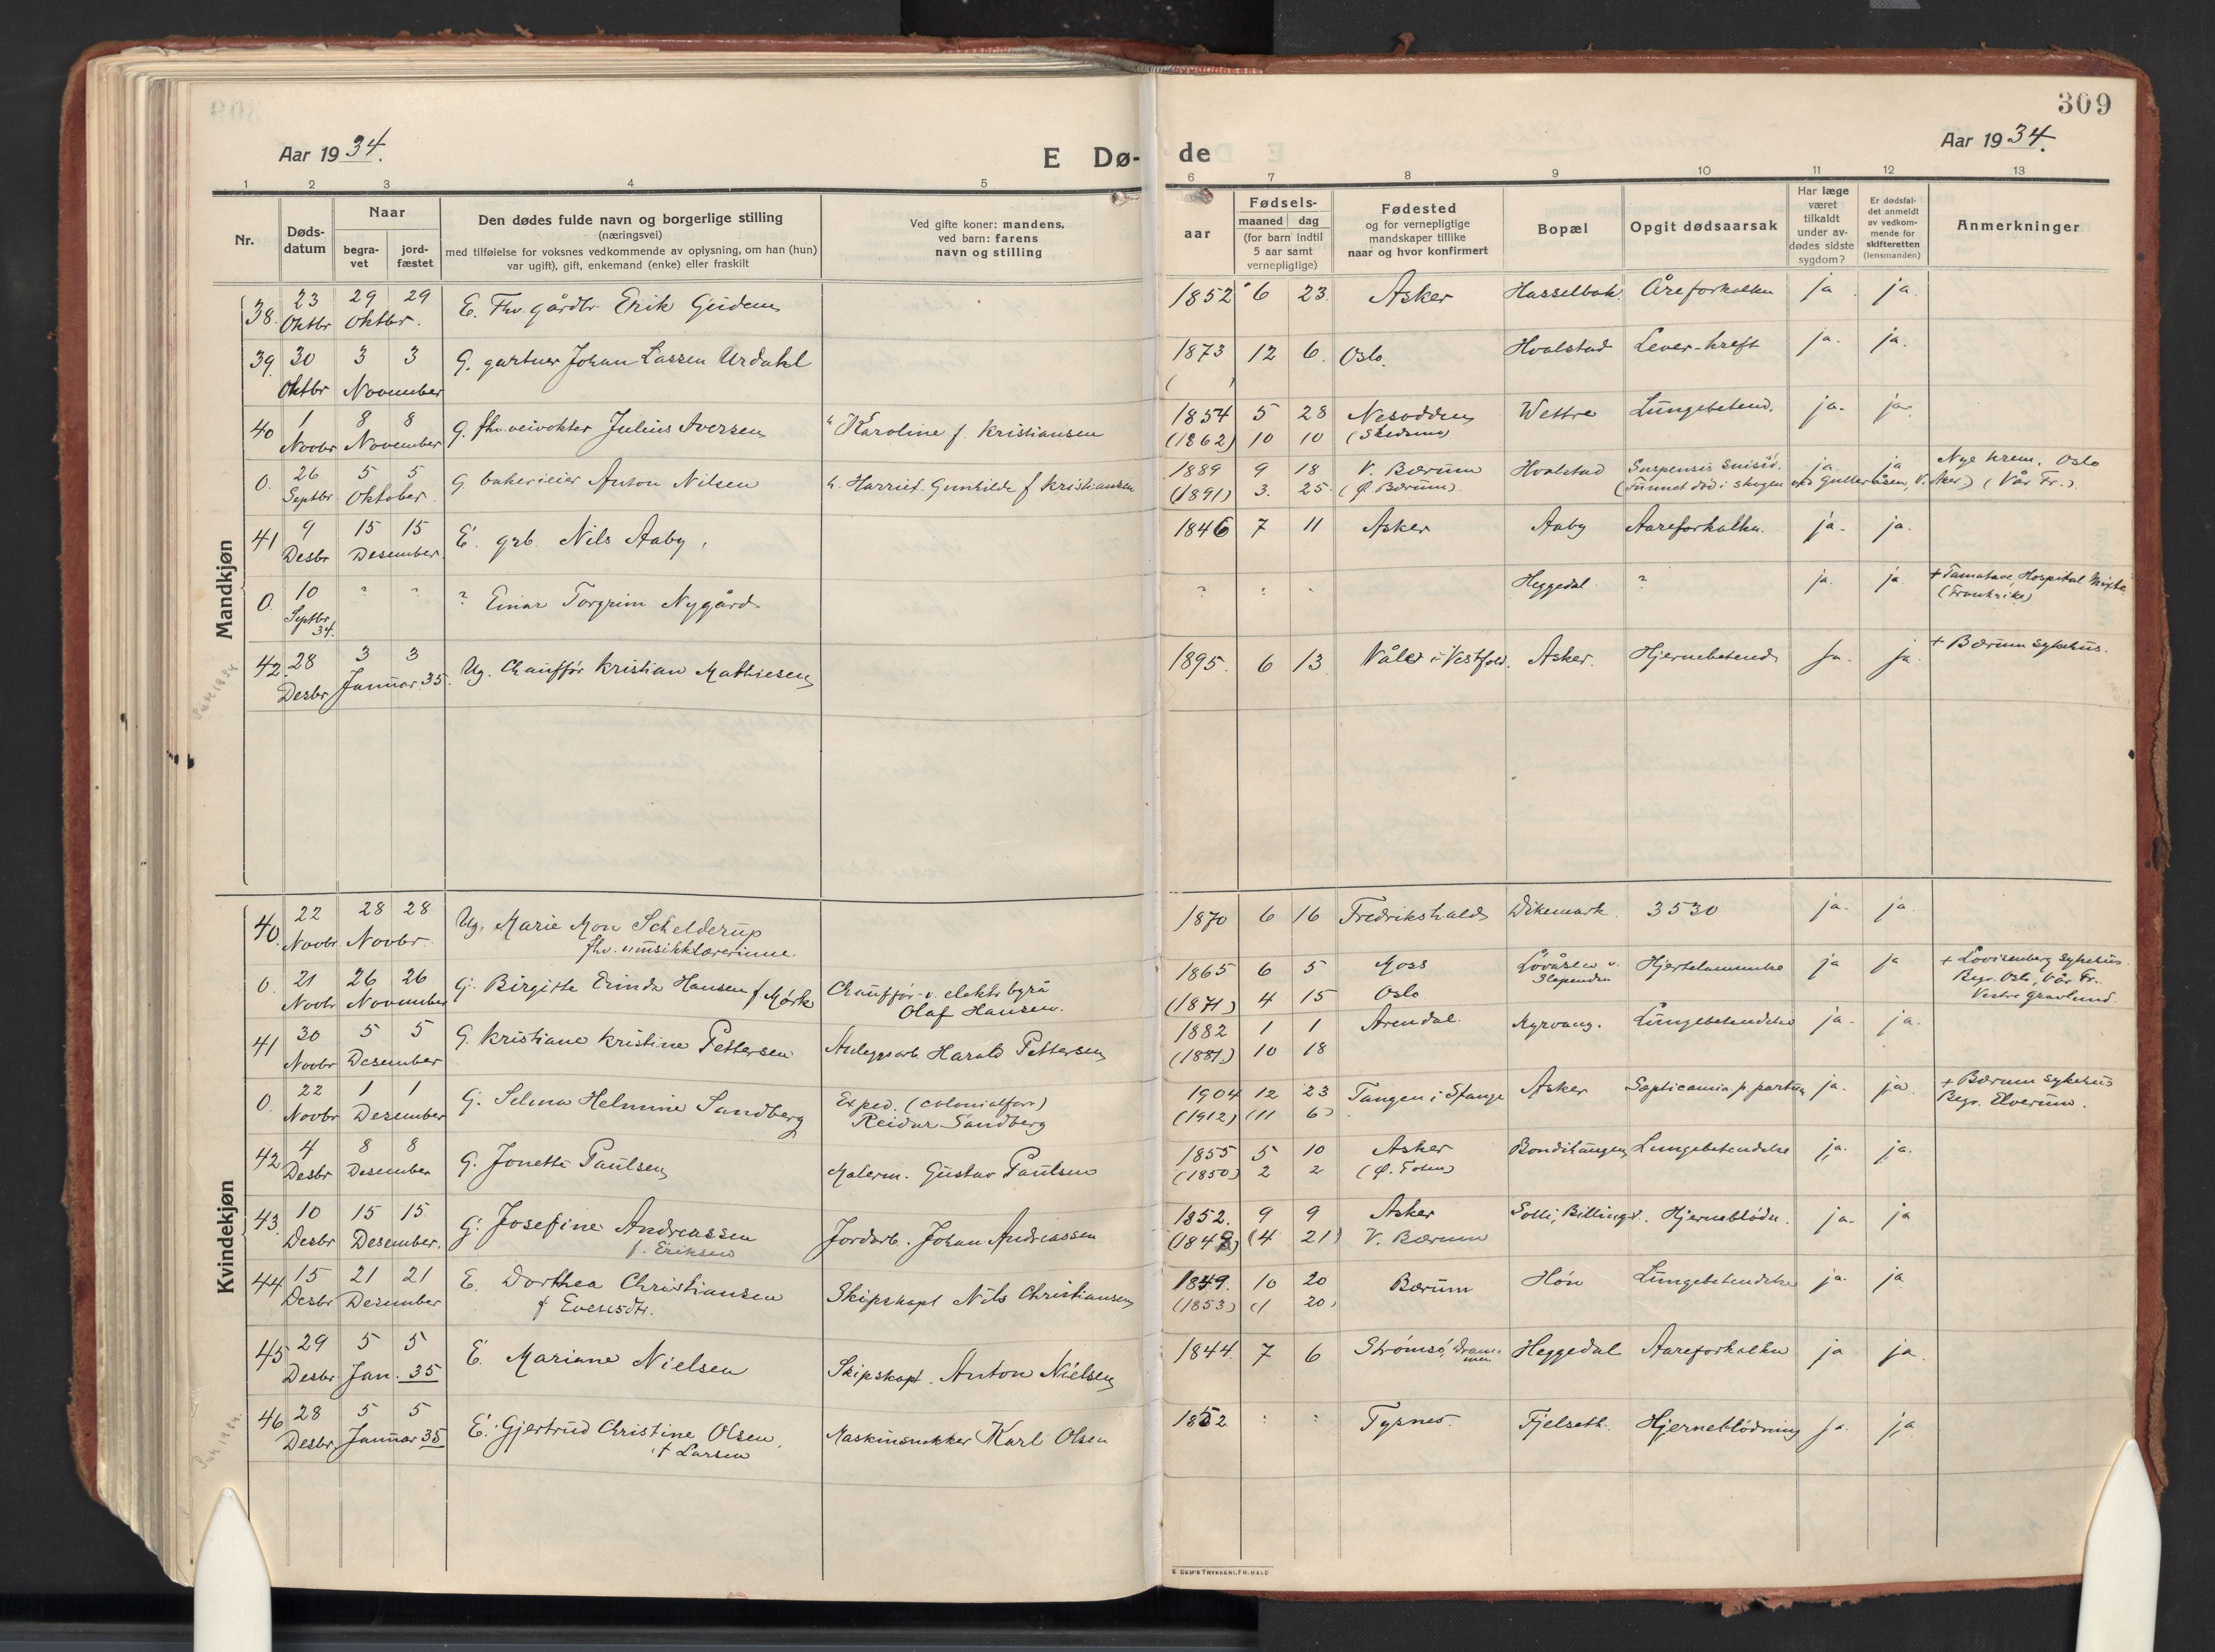 309
Aar 1934.
E Dø-
de
Aar 1934.
1 2 3 4 5 6 7 8 9 10 11 12 13
Nr.
Døds-
datum
Naar
begra-
vet
jord-
fæstet
Den dødes fulde navn og borgerlige stilling
(næringsvei)
med tilføielse for voksnes vedkommende av oplysning, om han (hun)
var ugift), gift, enkemand (enke) eller fraskilt
Ved gifte koner: mandens,
ved barn: farens
navn og stilling
aar
Fødsels-
maaned dag
(for barn indtil
5 aar samt
vernepligtige)
Fødested
og for vernepligtige
mandskaper tillike
naar og hvor konfirmert
Bopæl
Opgit dødsaarsak
Har læge
været
tilkaldt
under av-
dødes sidste
sygdom?
Er dødsfal-
det anmeldt
av vedkom-
mende for
skifteretten
(lensmanden)
Anmerkninger
Mandkjøn
38. 23 29 29 E. Fhv. gårdbr. Erik Guidem 1852 6 23. Asker Hasselbak. Åreforkalkn ja. ja.
Oktbr Oktbr.
39. 30 3 3 G. gartner Johan Lassen Urdahl 1873 12 6. Oslo. Hvalstad Lever-kreft ja. ja.
Oktbr November
40 1 8 8 G. fhv. veivokter Julius Iversen Karoline f. Kristiansen 1854 5 28 Nesodden Wettre Lungebetend. ja. ja.
Novbr November (1862) 10 10 (Skedsmo)
0. 26 5 5 G. bakerieier Anton Nilsen h. Harriet Gunhilde f Kristiansen 1889 9 18 V. Bærum Hvalstad Suspensis suisid. ja. ja Nye krem. Oslo
Septbr. Oktober. (1891) 3. 25. (Ø. Bærum). (Funnet død i skogen ved Gulleråsen, V. Aker.) (Vår Fr.).
41 9 15 15 E. grb. Nils Aaby, 1846 7 11 Asker Aaby Aareforkalkn. ja. ja.
Desbr Desember.
0. 10 ? ? ? Einar Torgrim Nygård ? Heggedal ? ja. ja. + Tamatave, Hospital Mixte
Septbr 34. (Frankrike)
42. 28 3 3 Ug. Chauffør Kristian Mathiesen 1895. 6 13 Våler i Vestfold. Asker. Hjernebetend. Ja. ja. + Bærum sykehus.
Desbr Januar 35.
Kvindekjøn
40. 22 28 28 Ug. Marie Mon Schelderup 1870 6 16 Fredrikshald Dikemark. 3530 ja. ja.
Novbr Novbr. fhv. musikklærerinne
0. 21 26 26 G. Birgitte Erinda Hansen f Mørk Chauffør v. elektr. byrå 1865 6 5 Moss Løvåsen v. Hjertelammelse ja ja + Lovisenberg sykehus.
Novbr November Olaf Hansen. (1871) 4 15 Oslo Slependen Begr. Oslo, Vår Fr.
Vestre gravlund.
41 30 5 5 G. Kristiane Kristine Pettersen Anleggsarb. Harald Pettersen 1882 1 1 Arendal. Myrvang. Lungebetendelse ja. ja.
Novbr Desember (1881.) 10 18
0. 22 1 1 G. Selma Helmine Sandberg Exped. (colonialforr) 1904 12 23 Tangen i Stange Asker Septicæmia p. partum ja. ja + Bærum sykehus
Novbr Desember Reidar Sandberg (1912) (11 6) Begr. Elverum.
42 4 8 8 G. Jonette Paulsen Malerm. Gustav Paulsen 1855 5 10 Asker Bondilungen Lungebetendelse ja. ja.
Desbr Desember (1850) 2 2 (Ø. Toten)
43. 10 15 15 G. Josefine Andreassen Jordarb. Johan Andreassen 1852. 9 9 Asker Solli, Billingst. Hjerneblødn. ja. ja
Desbr Desember. f. Eriksen (1848) (4 21) V. Bærum
44 15 21 21 E. Dorthea Christiansen Skipskapt Nils Christiansen 1849. 10 20 Bærum Høn Lungebetendelse ja. ja
Desbr Desember f Evensdtr. (1853) (1 20)
45 29 5 5 E. Mariane Nielsen Skipskapt. Anton Nielsen 1844. 7 6 Strømsø, Drammen Heggedal Aareforkalkn ja ja.
Desbr. Jan. 35
46 28 5 5 E. Gjertrud Christine Olsen Maskinsnekker Karl Olsen 1852 Tysnes. Fjelseth. Hjerneblødning ja. ja
Desbr. Januar 35 f Larsen
E SEM'S TRYKKERI, FR.HALD